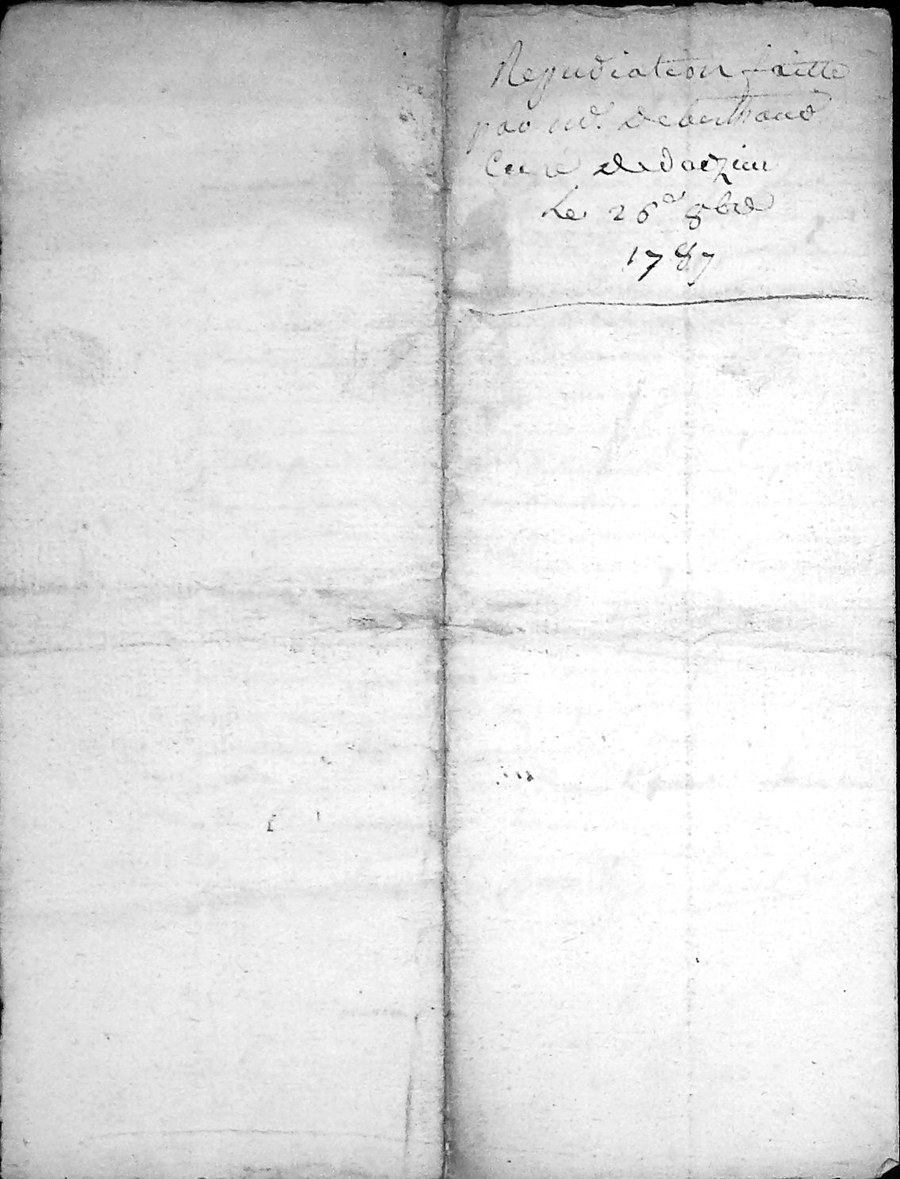 Repudiation faitte
par mr. Deberthand
Curé de Varzieu
Le 26e 8bre
1787